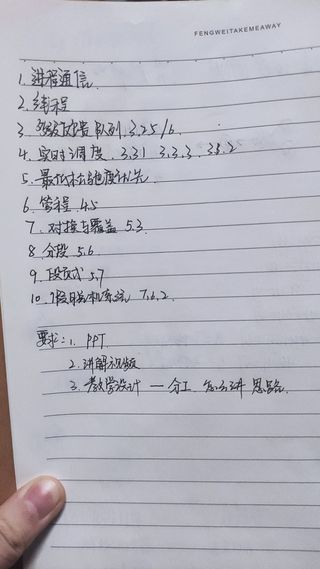 FENGWEITAKEMEAWAY
1. 进程通信
2. 线程
3. 多级反馈队列 3.2.5/6
4. 实时调度 3.3.1 3.3.3 3.3.2
5. 最低松弛度优先
6. 管程 4.5
7. 对换与覆盖 5.3
8 分段 5.6
9. 段页式 5.7
10. 假脱机系统 7.6.2
要求: 1. PPT
2. 讲解视频
3. 教学设计 — 分工 怎么讲 思路